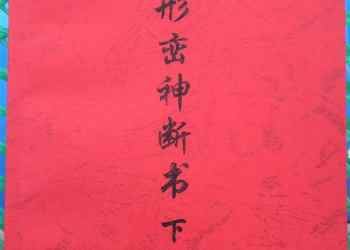 形峦神断书 下